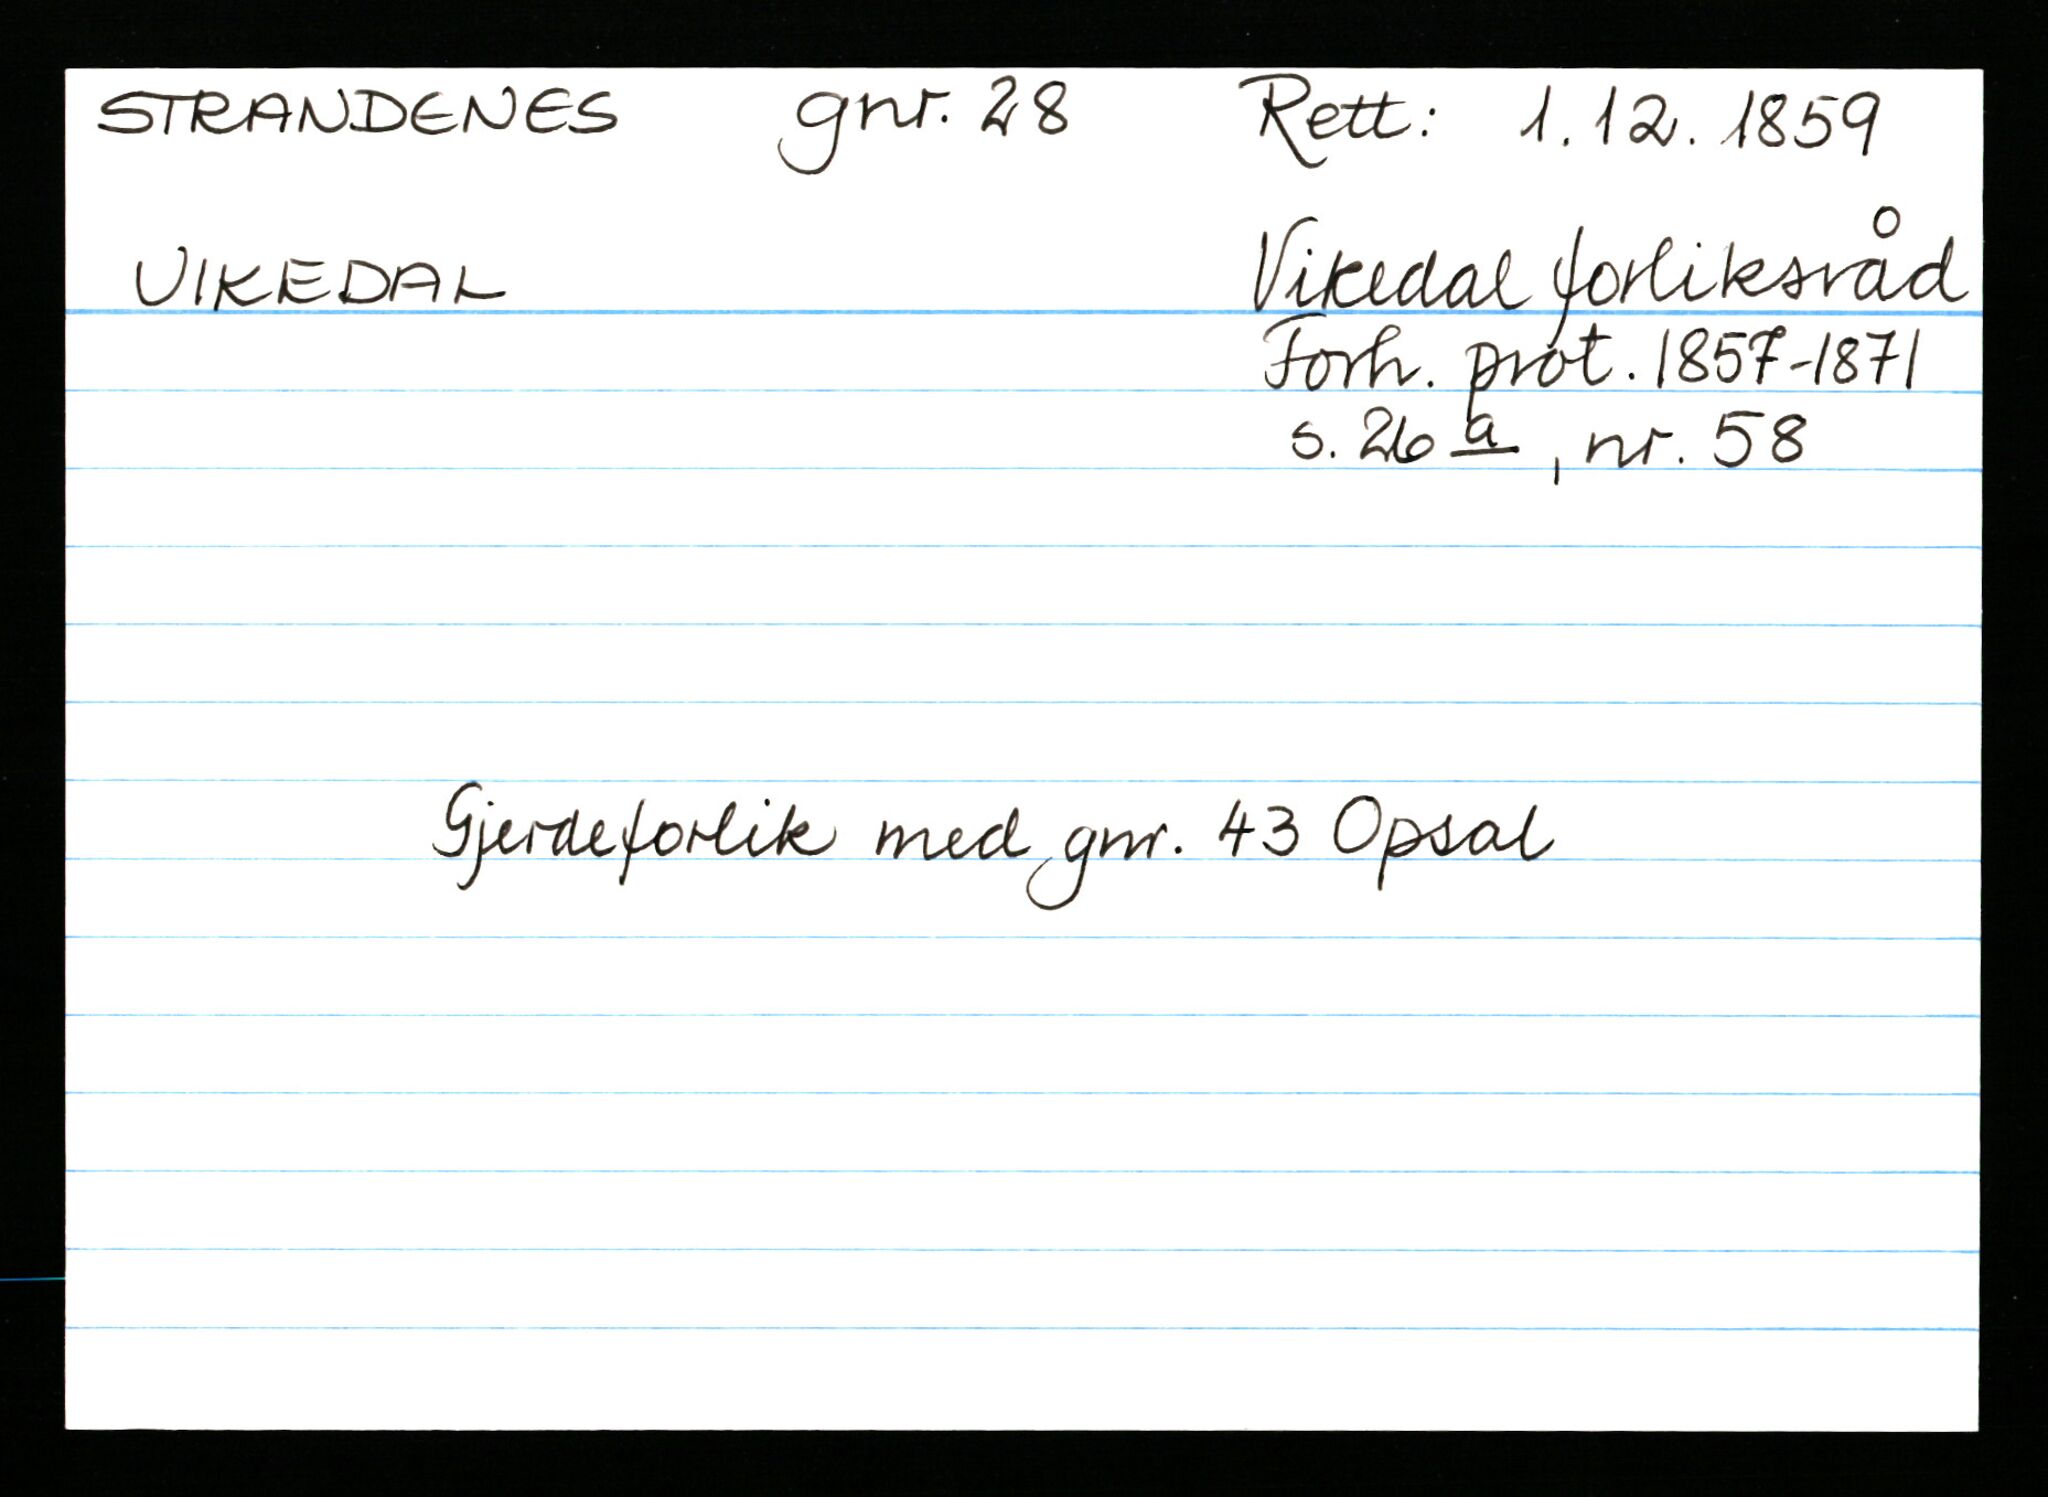 STRANDENES gnr. 28 Rett: 1.12.1859
VIKEDAL Vikedal forliksråd
Forh. prot. 1857-1871
s. 26 a, nr. 58
Gjerdeforlik med gnr. 43 Opsal